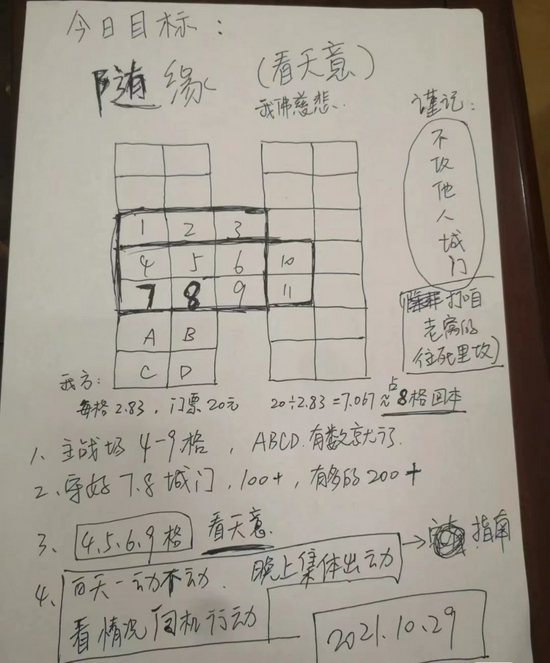 今日目标：
随缘（看天意）
我佛慈悲.
谨记：
不
攻
他
人
城
门
打咱
老窝的
往死里攻）
1 2 3
4 5 6 10
7 8 9 11
A B
C D
我方：
每格2.83，门票20元
20÷2.83=7.067≈占8格回本
1、主战场 4-9格，ABCD.有数就行.
2、守好7.8城门，100+，有多的200+
3、4.5.6.9格 看天意.
4、白天一动不动. 晚上集体出动→指南
看情况 伺机行动
2021.10.29